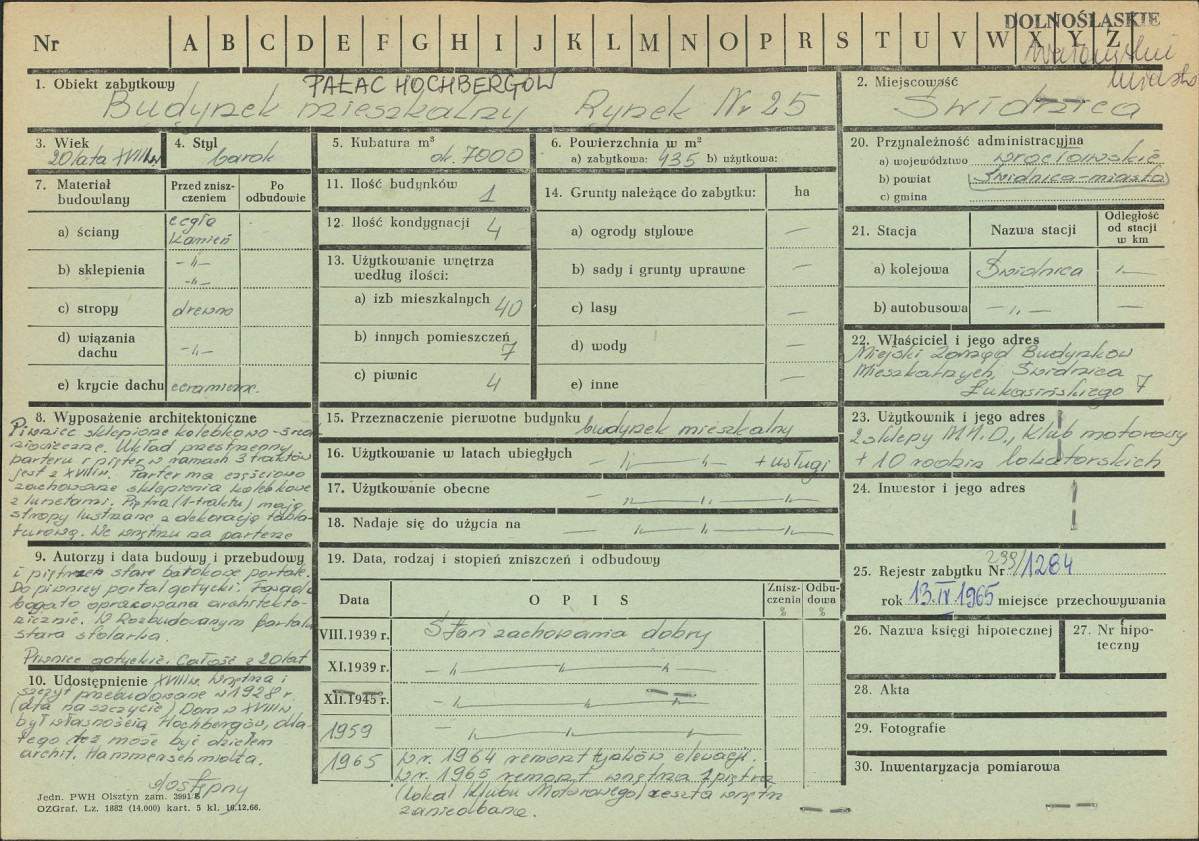 DOLNOŚLĄSKIE
Nr A B C D E F G H I J K L M N O P R S T U V W X Y Z
miasto
1. Obiekt zabytkowy PAŁAC HOCHBERGÓW
Budynek mieszkalny Rynek Nr 25
2. Miejscowość
Świdnica
3. Wiek
20 lata XVIII w
4. Styl
barok
5. Kubatura m³
ok. 7000
6. Powierzchnia w m²
a) zabytkowa: 435 b) użytkowa:
20. Przynależność administracyjna
a) województwo wrocławskie
b) powiat Świdnica-miasto
c) gmina
7. Materiał budowlany
Przed zniszczeniem
Po odbudowie
a) ściany cegła
kamień
b) sklepienia -"-
-"-
c) stropy drewno
d) wiązania dachu -"-
e) krycie dachu ceramiczne.
11. Ilość budynków 1
12. Ilość kondygnacji 4
13. Użytkowanie wnętrza według ilości:
a) izb mieszkalnych 40
b) innych pomieszczeń 7
c) piwnic 4
14. Grunty należące do zabytku: ha
a) ogrody stylowe —
b) sady i grunty uprawne —
c) lasy —
d) wody —
e) inne —
21. Stacja
Nazwa stacji
Odległość od stacji w km
a) kolejowa Świdnica
b) autobusowa -"- —
22. Właściciel i jego adres
Miejski Zarząd Budynków
Mieszkalnych, Świdnica
Łukasińskiego 7
8. Wyposażenie architektoniczne
Piwnice sklepione kolebkowo-śred
niowieczne. Układ przestrzenny
parteru i pięter w ramach 3 traktów
jest z XVIII w. Parter ma częściowo
zachowane sklepienia kolebkowe
z lunetami. Piętra (1-traktu) mają
stropy lustrzane z dekoracją
turową. We wnętrzu na parterze
9. Autorzy i data budowy i przebudowy
i piętrze stare barokowe portale.
Do piwnicy portal gotycki. Fasada
bogato opracowana architekto-
nicznie. W rozbudowanym portalu
stara stolarka.
Piwnice gotyckie. Całość z 20 lat
10. Udostępnienie XVIII w. Wnętrza i
szczyt przebudowane w 1928 r.
(data na szczycie) Dom w XVIII w
był własnością Hochbergów, dla-
tego też może być dziełem
archit. Hammerschmidta.
dostępny
15. Przeznaczenie pierwotne budynku budynek mieszkalny
16. Użytkowanie w latach ubiegłych -"- + usługi
17. Użytkowanie obecne -"- " "
18. Nadaje się do użycia na -"- " "
19. Data, rodzaj i stopień zniszczeń i odbudowy
Data
OPIS
Zniszczenia %
Odbudowa %
VIII.1939 r. Stan zachowania dobry
XI.1939 r. -"- " "
XII.1945 r. -"- " "
1959 -"- " "
1965 W r. 1964 remont tynków elewacji.
W r. 1965 remont wnętrza 1 piętra
(lokal Klubu Motorowego) reszta wnętrz
zaniedbana.
23. Użytkownik i jego adres
2 sklepy M.H.D., Klub motorowy
+ 10 rodzin lokatorskich
24. Inwestor i jego adres
25. Rejestr zabytku Nr 299/1284
rok 13.IV.1965 miejsce przechowywania
26. Nazwa księgi hipotecznej
27. Nr hipoteczny
28. Akta
29. Fotografie
30. Inwentaryzacja pomiarowa
Jedn. PWH Olsztyn zam. 3991/S
OZGraf. Lz. 1882 (14.000) kart. 5 kl. 16.12.66.